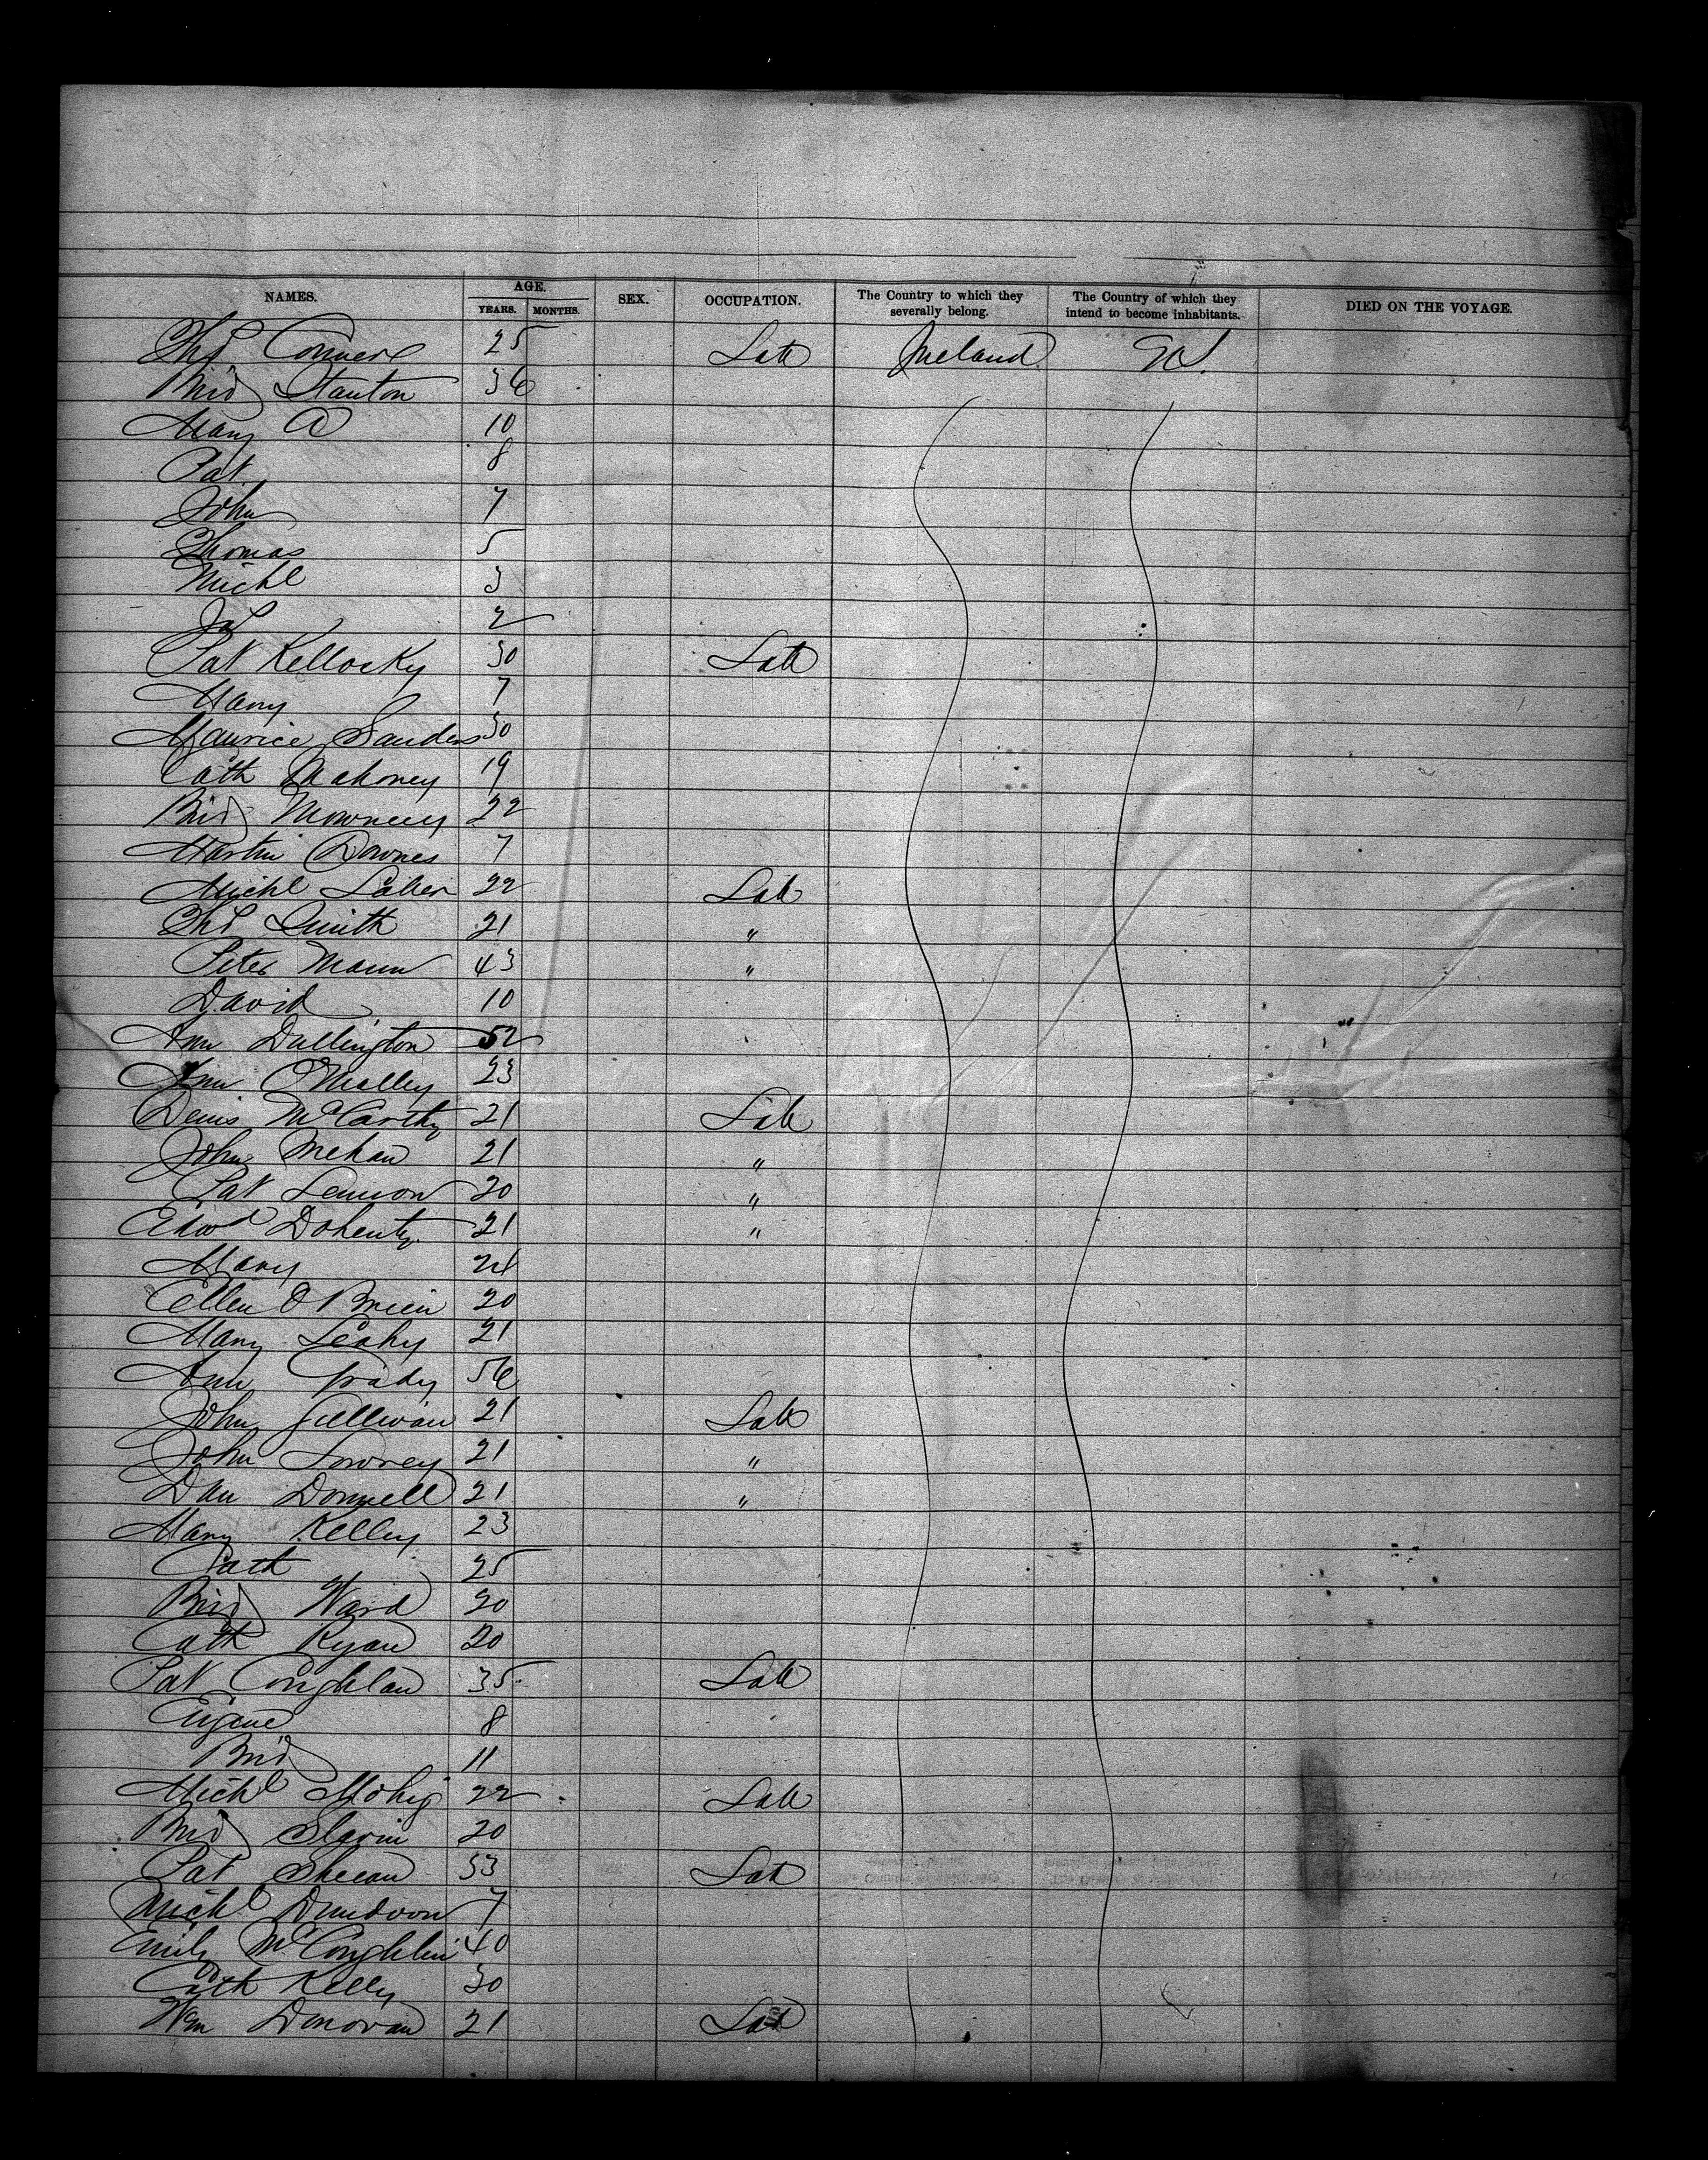 NAMES. AGE. SEX. OCCUPATION. The Country to which they severally belong. The Country of which they intend to become inhabitants. DIED ON THE VOYAGE.
YEARS. MONTHS.
Ths Connere 25 Lab Ireland
Brid Stanton 36
Mary A 10
Pat 8
John 7
Thomas 5
Michl 3
Jas 2
Pat Kellocky 30 Lab
Mary 7
Maurice Sanders 30
Cath Mahoney 19
Brid 22
Martin Downes 7
Michl 22 Lab
Ths Smith 21 "
Peter Mann 43 "
David 10
Ann Dallington 52
Ann O'Malley 23
Denis McCarthy 21 Lab
John Mehan 21 "
Pat Lennon 20 "
Edwd Doherty 21 "
Mary 21
Ellen O Brien 20
Mary Leahy 21
Ann Grady 56
John Sullivan 21 Lab
John Lowrey 21 "
Dan Donnell 21 "
Mary Kelley 23
Cath 25
Brid Ward 20
Cath Ryan 20
Pat Coughlan 35 Lab
Eugene 8
Brid 11
Michl 22 Lab
Brid Slavin 20
Pat Sheean 53 Lab
Michl Dundoon 7
Emily McCoughlin 40
Cath Kelly 30
Wm Donovan 21 Lab